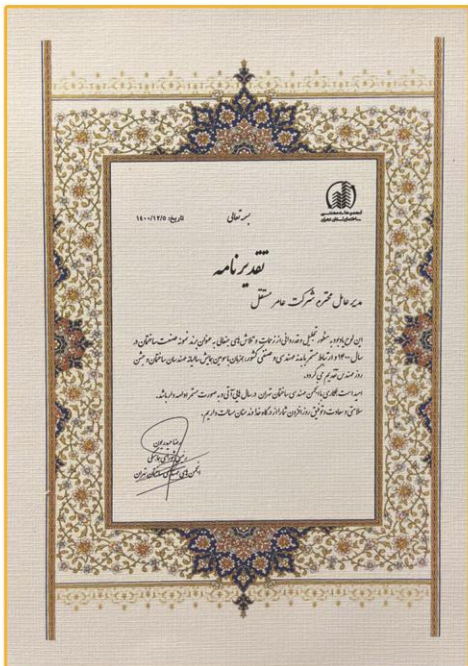 انجمن های مهندسی
ساختمان استان تهران
بسمه تعالی
تاریخ: ۱۴۰۰/۱۲/۵
تقدیرنامه
مدیر عامل محترم شرکت عامر مستقل
این لوح یادبود به منظور تجلیل و قدردانی از زحمات و تلاش های جنابعالی به عنوان برند نمونه صنعت ساختمان در
سال ۱۴۰۰ و ارتباط مستمر با بدنه مهندسی و صنفی کشور، همزمان با سومین همایش سالیانه مهندسان ساختمان و جشن
روز مهندس تقدیم می گردد.
امید است همکاری با انجمن مهندسی ساختمان تهران در سال های آتی و به صورت مستمر ادامه دار باشد.
سلامتی و سعادت و توفیق روز افزون شما را از درگاه خداوند منان مسالت داریم.
رضا حیدریون
رئیس شورای هماهنگی
انجمن های مهندسی ساختمان تهران